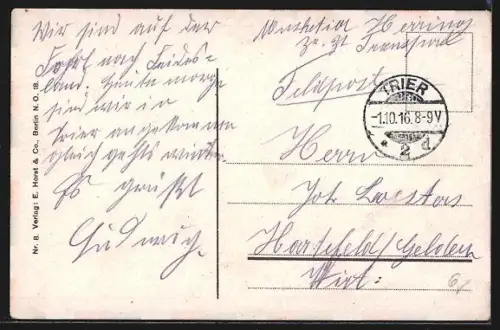 Wir sind auf der
Fahrt nach Feindes-
land. Heute morgen
sind wir in
Trier angekommen
gleich gehts weiter.
Es grüßt
Ludwig.
Nr. 8. Verlag: E. Horst & Co., Berlin N.O. 18.
Musketier Herring
Zr. Zt.
Feldpost
TRIER
-1.10.16.8-9V
* 2 d
Herrn
Joh.
/Geldern
Wirt: